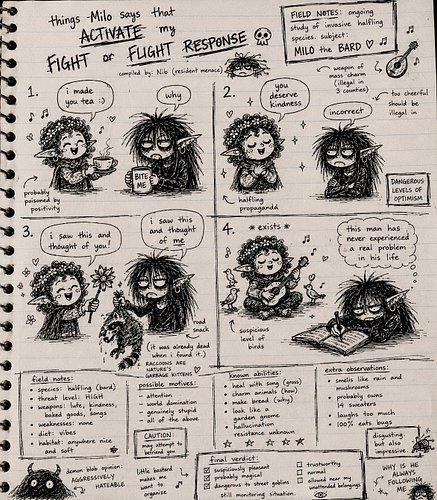 things Milo says that
ACTIVATE my
FIGHT or FLIGHT RESPONSE
compiled by: Nib (resident menace)
FIELD NOTES: ongoing
study of invasive halfling
species. subject:
MILO the BARD ♡
weapon of
mass charm
(illegal in
3 counties)
too cheerful
should be
illegal in
1.
i made
you tea :)
why
BITE
ME
probably
poisoned by
positivity
2.
you
deserve
kindness
incorrect
halfling
propaganda
DANGEROUS
LEVELS OF
OPTIMISM
3.
i saw this and
thought of you!
i saw this
and thought
of me
road
snack
(it was already dead
when i found it.)
RACCOONS ARE
NATURE'S
GARBAGE KITTENS ♡
4.
*exists*
this man has
never experienced
a real problem
in his life
suspicious
level of
birds
field notes:
• species: halfling (bard)
• threat level: HIGH
• weapons: lute, kindness,
baked goods, songs
• weaknesses: none
• diet: vibes
• habitat: anywhere nice
and soft
possible motives:
- attention
- world domination
- genuinely stupid
- all of the above
CAUTION:
may attempt
to befriend
you
known abilities:
• heal with song (gross)
• charm animals (how)
• make bread (why)
• look like a
garden gnome
• hallucination
resistance unknown
extra observations:
• smells like rain and
mushrooms
• probably owns
14 sweaters
• laughs too much
• 100% eats bugs
disgusting.
but also
impressive.
demon blob opinion:
AGGRESSIVELY
HATEABLE
little bastard
makes me
want to
organize
final verdict:
☑ suspiciously pleasant
☑ probably magical
☑ dangerous to street goblins
☐ trustworthy
☐ normal
☐ allowed near my
unattended belongings
still monitoring situation.
WHY IS HE
ALWAYS
FOLLOWING